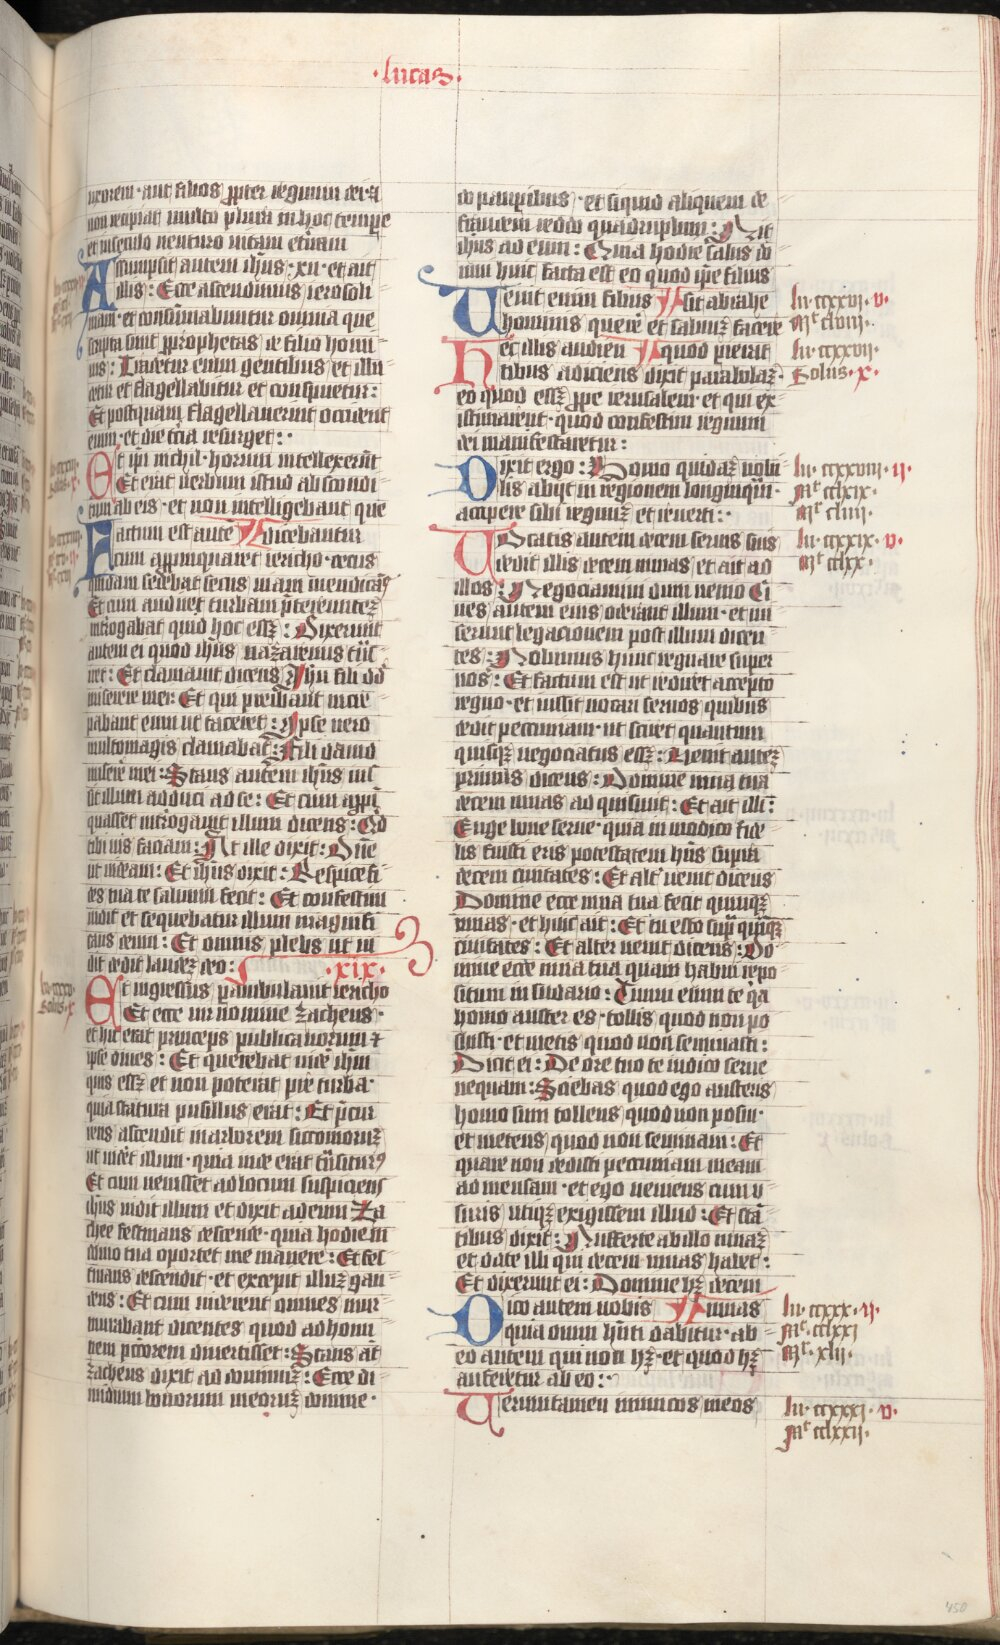 ·lucas·
uxorem· aut filios ꝓpter regnum dei ⁊
non recipiat multo plura in hoc tempe
et in seculo venturo vitam etnam
Assumpsit autem ihus· xii· et ait
illis: Ecce ascendimus ierosoli
mam· et consumabuntur omnia que
scripta sunt ꝑ prophetas de filio homi
nis: Tradetur enim gentibus et illu
detur et flagellabitur et conspuetur:
Et postquam flagellauerint occident
eum· et die tcia resurget:·
Et ipi nichil· horum intellexerut
Et erat verbum istud abscondi
tum ab eis· et non intelligebant que
Factum est aute dicebantur
cum appinquaret iericho· cecus
quidam sedebat secus viam mendicas
Et cum audiret turbam ptereuntez
introgabat quid hoc essz: Dixerunt
autem ei quod ihus nazarenus tns
iret: Et clamauit dicens Ihu fili dd
miserere mei: Et qui preibant incre
pabant eum ut taceret: Ipse vero
multomagis clamabat: Fili dauid
misere mei: Stans autem ihus ius
sit illum adduci ad se: Et cum appi
quasset introgauit illum dicens: Qd
tibi uis faciam: At ille dixit: Dne
ut uideam: Et ihus dixit: Respice fi
des tua te saluum fecit: Et confestim
uidit et sequebatur illum magnifi
cans deum: Et omnis plebs ut ui
dit dedit laudez deo: ·xix·
Et ingressus ꝑambulauit iericho
Et ecce uir nomine zacheus·
et hic erat princeps publicanorum ⁊
ipse diues: Et querebat uide ihm
quis essz et non poterat pre turba·
quia statura pusillus erat: Et pcur
rens ascendit in arborem siccomoruz
ut uidet illum· quia inde erat tnsiturus
Et cum uenisset ad locum suspiciens
ihus uidit illum et dixit ad eum Za
chee festinans descende· quia hodie in
domo tua oportet me manere: Et fes
tinans descendit· et excepit illuz gau
dens: Et cum uiderent omnes mur
murabant dicentes quod ad homi
nem pctorem diuertisset: Stans at
zacheus dixit ad dominuz: Ecce di
midium bonorum meoruz domine·
do pauperibus· et si quid aliquem de
fraudem reddo quadruplum: Ait
ihus ad eum: Quia hodie salus do
mui huic facta est eo quod ipe filius
Uenit enim filius sit abrahe
hominis quere et saluuz facere
Hec illis audien quod perierat
tibus adiciens dixit parabolaz·
eo quod essz ꝓpe ierusalem· et qui ex
istimarent· quod confestim regnum
dei manifestaretur:
Dixit ergo: Homo quidaz nobi
lis abijt in regionem longinqua·
accipere sibi regnuz et reuerti:·
Uocatis autem decem seruis suis
dedit illis decem mnas· et ait ad
illos: Negociamini dum uenio Ci
ues autem eius oderant illum· et mi
serunt legacionem post illum dicen
tes: Nolumus hunc regnare super
nos: Et factum est ut rediret accepto
regno· et iussit uocari seruos quibus
dedit pecuniam· ut sciret quantum
quisqz negociatus essz: Uenit autez
primus dicens: Domine mna tua
decem mnas adquisiuit: Et ait illi:
Euge bone serue· quia in modico fide
lis fuisti eris potestatem hns supra
decem ciuitates: Et alt uenit dicens
Domine ecce mna tua fecit quinqz
mnas· et huic ait: Et tu esto sup quiqz
ciuitates: Et alter uenit dicens: Do
mine ecce mna tua quam habui repo
sitam in sudario: Timui enim te qa
homo auster es· tollis quod non po
suisti· et metis quod non seminasti:
Dicit ei: De ore tuo te iudico serue
nequam: Sciebas quod ego austerus
homo sum tollens quod non posui·
et metens quod non seminaui: Et
quare non dedisti pecuniam meam
ad mensam· et ego ueniens cum u
suris utiqz exigissem illud: Et stan
tibus dixit: Aufferte ab illo mnaz
et date illi qui decem mnas habet:
Et dixerunt ei: Domine hz decem
Dico autem uobis mnas
quia omni hnti dabitur· ab
eo autem qui non hz· et quod hz
auferetur ab eo:·
Uerumtamen inimicos meos
lu· ccxxvi· v·
Mt clviii·
lu· ccxxvii·
Solus· x·
lu· ccxxviii· ii·
Mt cclxix·
Mr cliiii·
lu· ccxxix· v·
Mt cclxx·
lu· ccxxx· ii·
Mt· cclxxi
Mr· xlii·
lu· ccxxxi· v·
Mt cclxxii·
450